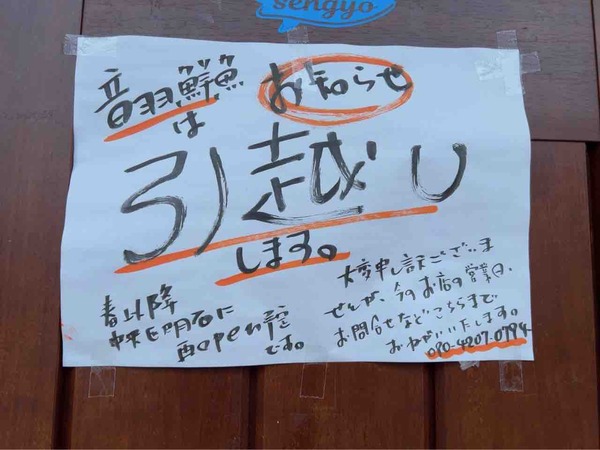 sengyo
音羽鮮魚
は
お知らせ
引越し
します。
春以降
明石に
再open予定
です。
大変申し訳ございま
せんが、今のお店の営業日、
お問合せなどこちらまで
おねがいいたします。
080-4207-0794